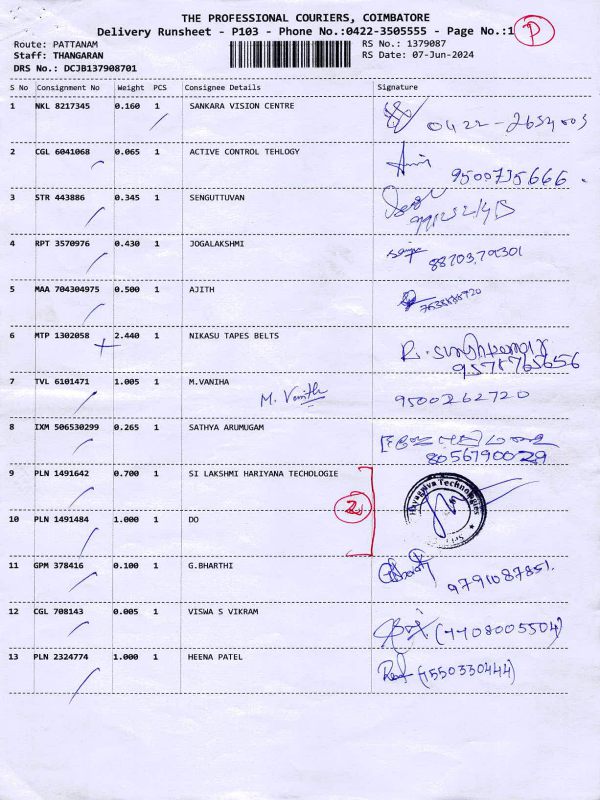 THE PROFESSIONAL COURIERS, COIMBATORE
Delivery Runsheet - P103 - Phone No.:0422-3505555 - Page No.:1 P
Route: PATTANAM RS No.: 1379087
Staff: THANGARAN RS Date: 07-Jun-2024
DRS No.: DCJB137908701
S No Consignment No Weight PCS Consignee Details Signature
1 NKL 8217345 0.160 1 SANKARA VISION CENTRE 0422-2654003
2 CGL 6041068 0.065 1 ACTIVE CONTROL TEHLOGY 9500735666.
3 STR 443886 0.345 1 SENGUTTUVAN
4 RPT 3570976 0.430 1 JOGALAKSHMI
5 MAA 704304975 0.500 1 AJITH
6 MTP 1302058 2.440 1 NIKASU TAPES BELTS 9578765656
7 TVL 6101471 1.005 1 M.VANIHA M. Vanitha 9500262720
8 IXM 506530299 0.265 1 SATHYA ARUMUGAM 8056790029
9 PLN 1491642 0.700 1 SI LAKSHMI HARIYANA TECHOLOGIE 2 Hayagriva Technologies
10 PLN 1491484 1.000 1 DO
11 GPM 378416 0.100 1 G.BHARTHI 9791087851.
12 CGL 708143 0.005 1 VISWA S VIKRAM (7708005504)
13 PLN 2324774 1.000 1 HEENA PATEL (7550330444)